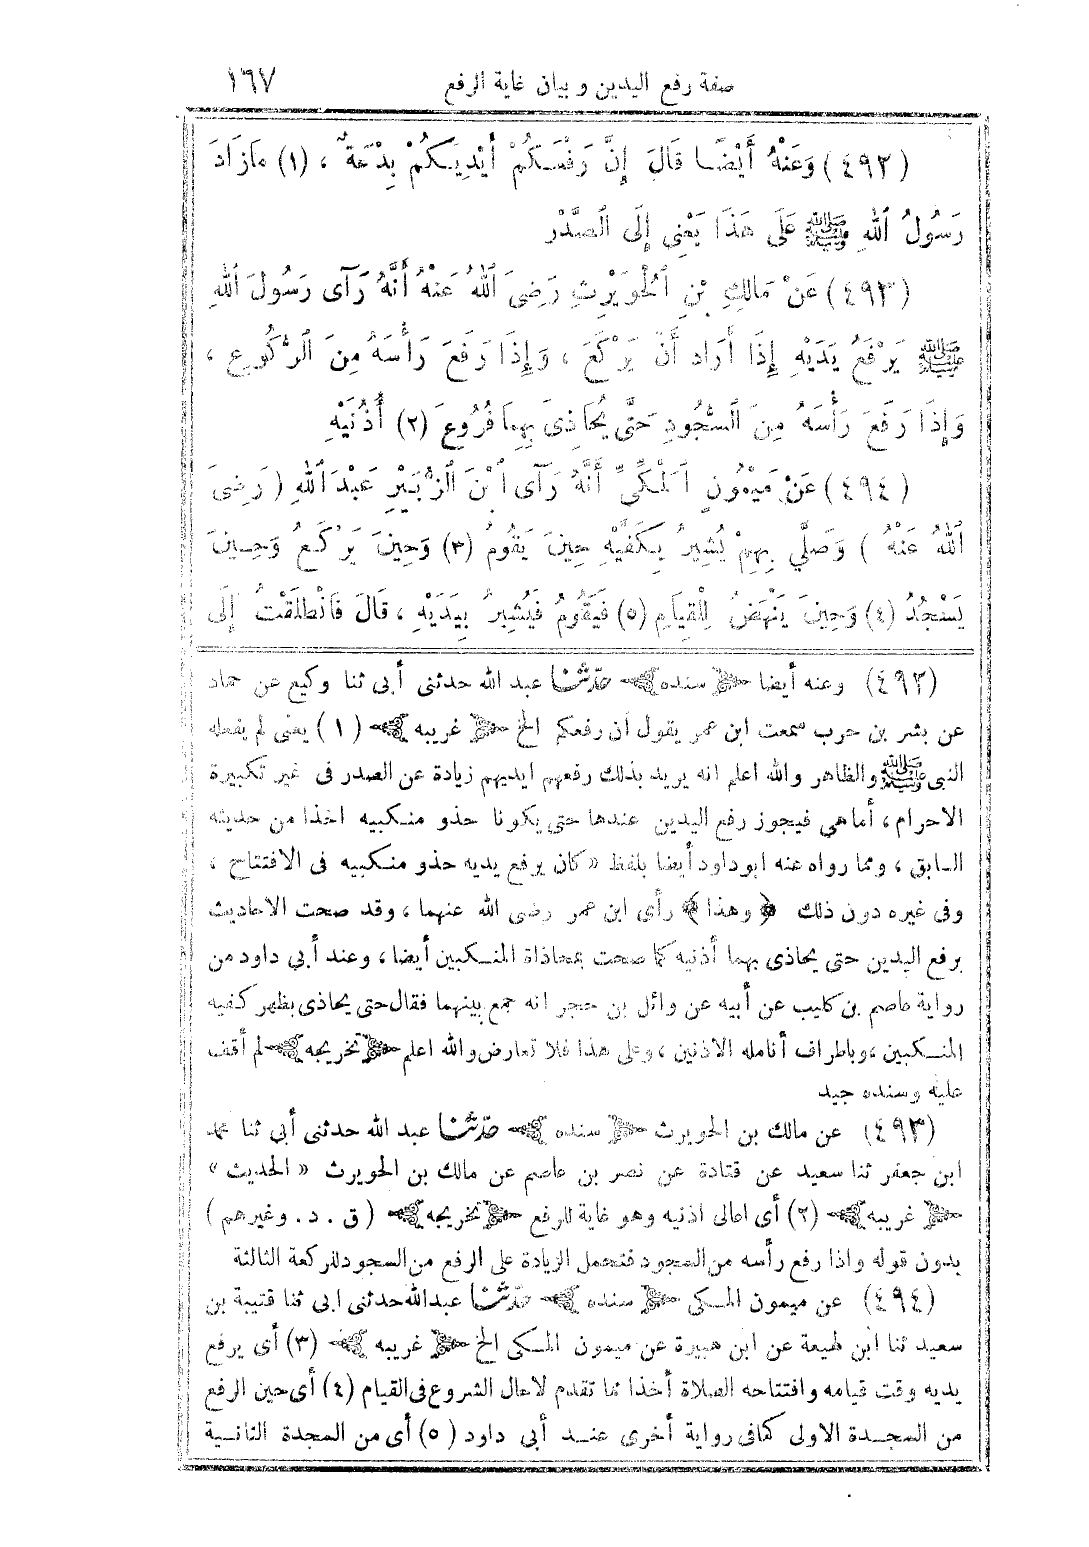 صفة رفع اليدين و بيان غاية الرفع ١٦٧
(٤٩٢) وَعَنْهُ أَيْضًا قَالَ إِنَّ رَفْعَكُمْ أَيْدِيَكُمْ بِدْعَةٌ ، (١) مَازَادَ
رَسُولُ اللهِ ﷺ عَلَى هَذَا يَعْنِي إِلَى الصَّدْرِ
(٤٩٣) عَنْ مَالِكِ بْنِ الْحُوَيْرِثِ رَضِيَ اللهُ عَنْهُ أَنَّهُ رَآى رَسُولَ اللهِ
ﷺ يَرْفَعُ يَدَيْهِ إِذَا أَرَادَ أَنْ يَرْكَعَ ، وَإِذَا رَفَعَ رَأْسَهُ مِنَ الرُّكُوعِ ،
وَإِذَا رَفَعَ رَأْسَهُ مِنَ السُّجُودِ حَتَّى يُحَاذِىَ بِهِمَا فُرُوعَ (٢) أُذُنَيْهِ
(٤٩٤) عَنْ مَيْمُونٍ الْمَكِّيِّ أَنَّهُ رَآى ابْنَ الزُّبَيْرِ عَبْدَ اللهِ (رَضِيَ
اللهُ عَنْهُ ) وَصَلَّى بِهِمْ يُشِيرُ بِكَفَّيْهِ حِينَ يَقُومُ (٣) وَحِينَ يَرْكَعُ وَحِينَ
يَسْجُدُ (٤) وَحِينَ يَنْهَضُ لِلْقِيَامِ (٥) فَيَقُومُ فَيُشِيرُ بِيَدَيْهِ ، قَالَ فَانْطَلَقْتُ إِلَى
(٤٩٢) وعنه أيضا ﴿ سنده ﴾ حدّثنا عبد الله حدثنى أبى ثنا وكيع عن حماد
عن بشر بن حرب سمعت ابن عمر يقول ان رفعكم الخ ﴿ غريبه ﴾ (١) يعنى لم يفعله
النبى ﷺ والظاهر والله اعلم انه يريد بذلك رفعهم ايديهم زيادة عن الصدر فى غير تكبيرة
الاحرام ، أما هي فيجوز رفع اليدين عندها حتى يكونا حذو منكبيه اخذا من حديثه
السابق ، ومما رواه عنه ابو داود أيضا بلفظ « كان يرفع يديه حذو منكبيه فى الافتتاح ،
وفى غيره دون ذلك ﴿ وهذا ﴾ رأى ابن عمر رضى الله عنهما ، وقد صحت الاحاديث
برفع اليدين حتى يحاذى بهما أذنيه كما صحت بمحاذاة المنكبين أيضا ، وعند أبى داود من
رواية عاصم بن كليب عن أبيه عن وائل بن حجر انه جمع بينهما فقال حتى يحاذى بظهر كفيه
المنكبين ، وباطراف أنامله الاذنين ، وعلى هذا فلا تعارض والله اعلم ﴿ تخريجه ﴾ لم أقف
عليه وسنده جيد
(٤٩٣) عن مالك بن الحويرث ﴿ سنده ﴾ حدّثنا عبد الله حدثنى أبى ثنا محمد
ابن جعفر ثنا سعيد عن قتادة عن نصر بن عاصم عن مالك بن الحويرث « الحديث »
﴿ غريبه ﴾ (٢) أى اعالى اذنيه وهو غاية للرفع ﴿ تخريجه ﴾ ( ق . د . وغيرهم )
بدون قوله واذا رفع رأسه من السجود فتحمل الزيادة على الرفع من السجود للركعة الثالثة
(٤٩٤) عن ميمون المكى ﴿ سنده ﴾ حدّثنا عبد الله حدثنى ابى ثنا قتيبة بن
سعيد ثنا ابن لهيعة عن ابن هبيرة عن ميمون المكى الخ ﴿ غريبه ﴾ (٣) أى يرفع
يديه وقت قيامه وافتتاحه الصلاة أخذا مما تقدم لاحال الشروع فى القيام (٤) أى حين الرفع
من السجدة الاولى كما فى رواية أخرى عند أبى داود (٥) أى من السجدة الثانية